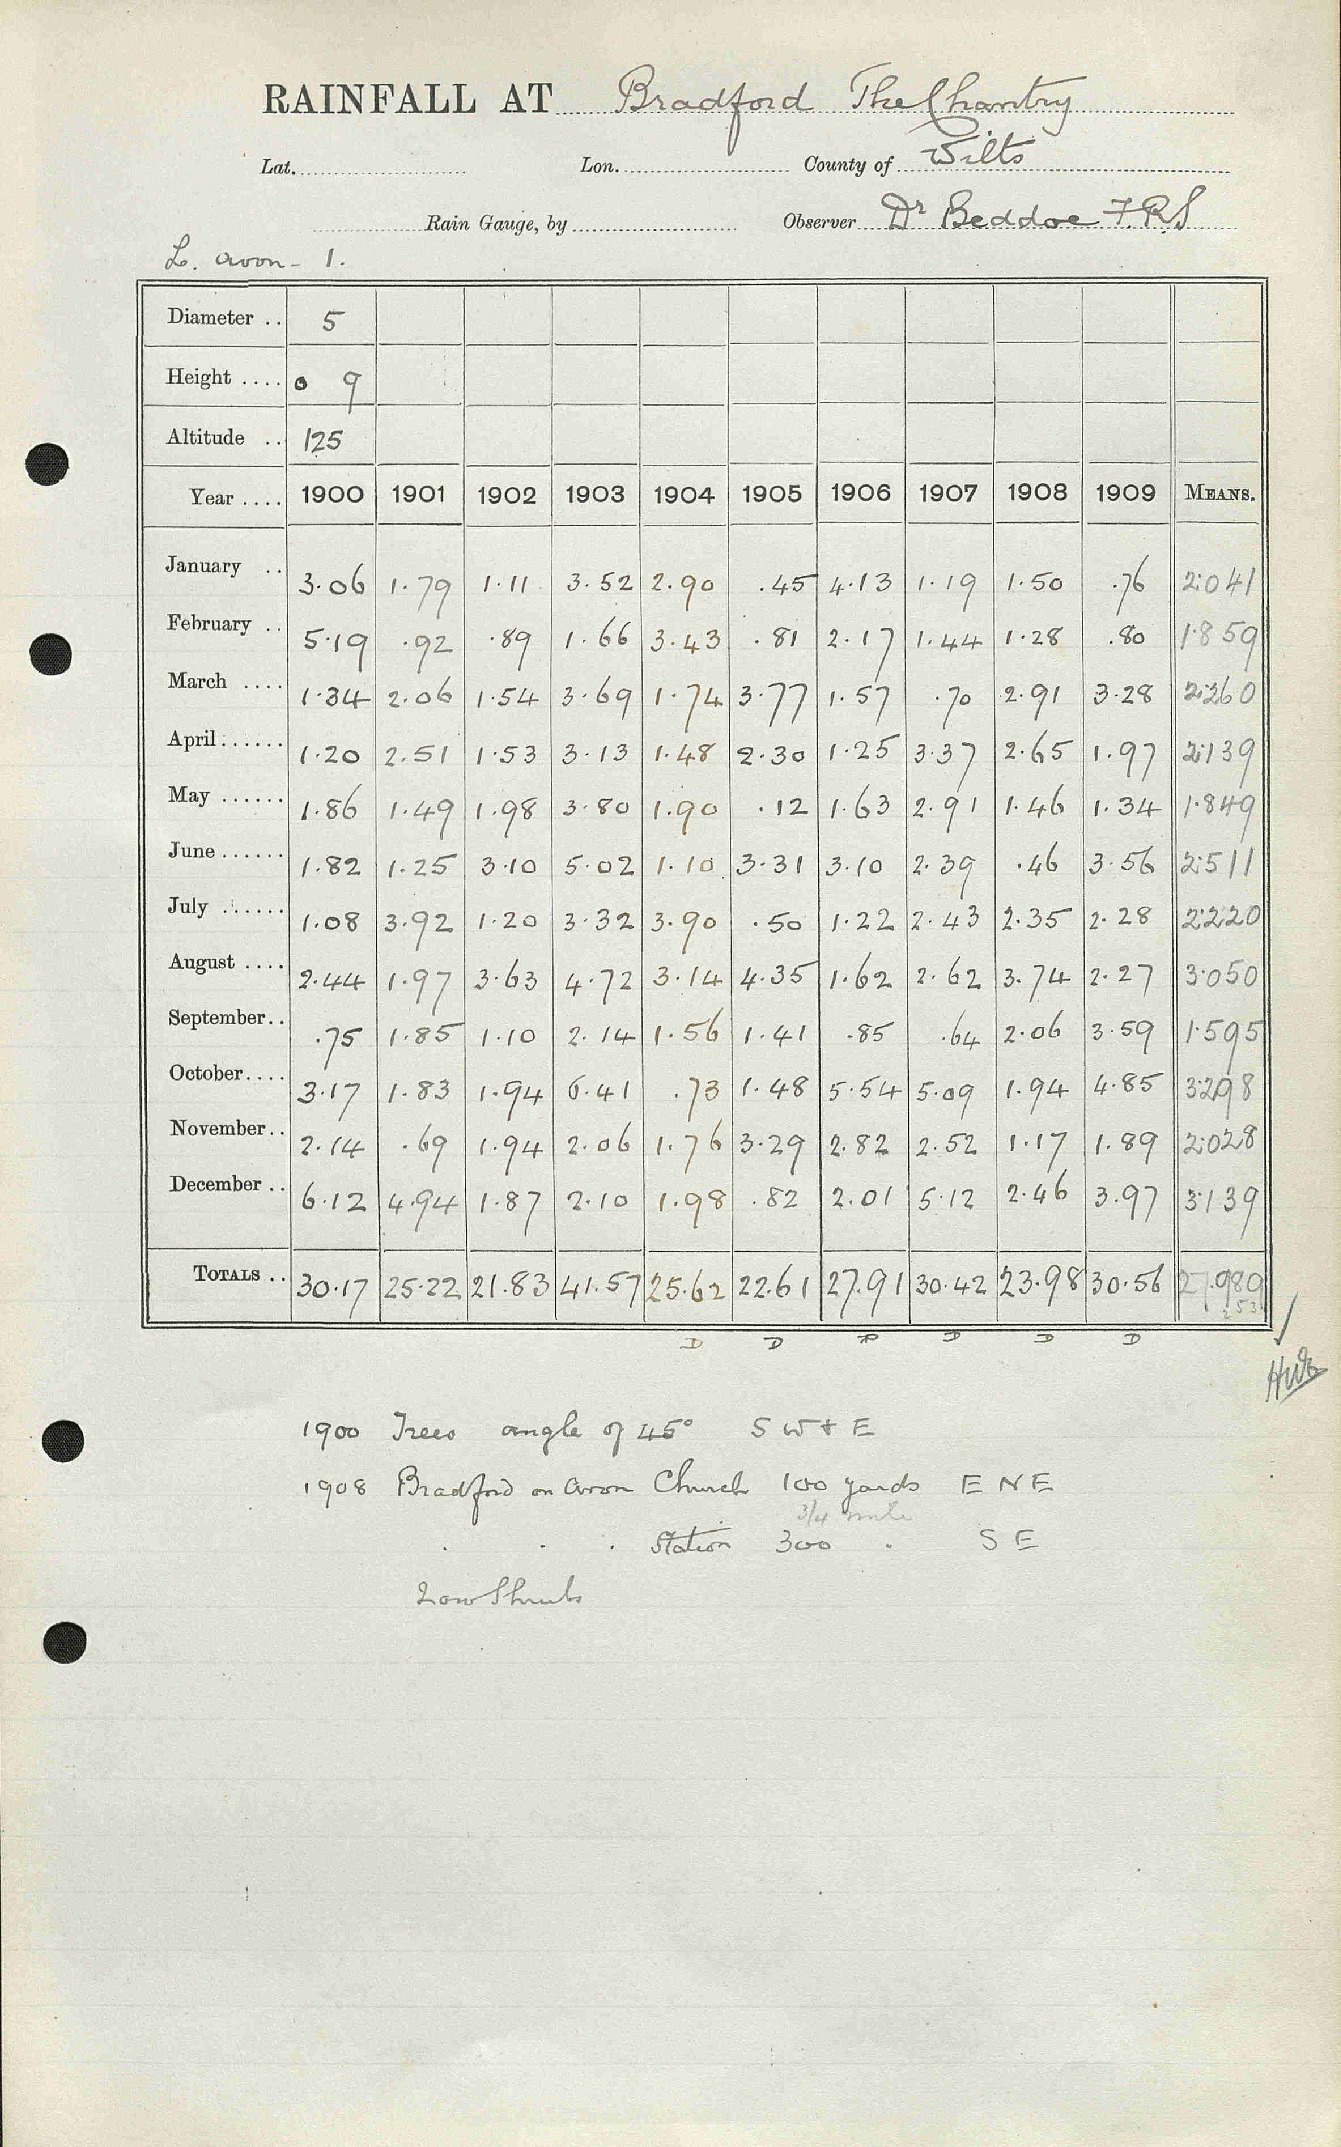 RAINFALL AT Bradford The Chantry
Lat. Lon. County of Wilts
Rain Gauge, by Observer Dr Beddoe F.R.S
L. Avon - 1.
Diameter .. 5
Height .... 0 9
Altitude .. 125
Year .... 1900 1901 1902 1903 1904 1905 1906 1907 1908 1909 MEANS.
January .. 3.06 1.79 1.11 3.52 2.90 .45 4.13 1.19 1.50 .76 2.041
February .. 5.19 .92 .89 1.66 3.43 .81 2.17 1.44 1.28 .80 1.859
March .... 1.34 2.06 1.54 3.69 1.74 3.77 1.57 .70 2.91 3.28 2.260
April ...... 1.20 2.51 1.53 3.13 1.48 2.30 1.25 3.37 2.65 1.97 2.139
May ...... 1.86 1.49 1.98 3.80 1.90 .12 1.63 2.91 1.46 1.34 1.849
June ...... 1.82 1.25 3.10 5.02 1.10 3.31 3.10 2.39 .46 3.56 2.511
July ...... 1.08 3.92 1.20 3.32 3.90 .50 1.22 2.43 2.35 2.28 2.220
August .... 2.44 1.97 3.63 4.72 3.14 4.35 1.62 2.62 3.74 2.27 3.050
September.. .75 1.85 1.10 2.14 1.56 1.41 .85 .64 2.06 3.59 1.595
October.... 3.17 1.83 1.94 6.41 .73 1.48 5.54 5.09 1.94 4.85 3.298
November.. 2.14 .69 1.94 2.06 1.76 3.29 2.82 2.52 1.17 1.89 2.028
December .. 6.12 4.94 1.87 2.10 1.98 .82 2.01 5.12 2.46 3.97 3.139
TOTALS .. 30.17 25.22 21.83 41.57 25.62 22.61 27.91 30.42 23.98 30.56 27.980
D D D D D D
1900 Trees angle of 45° S W + E
1908 Bradford on Avon Church 100 yards E N E
3/4 mile
. . . Station 300 . S E
Low Shrubs